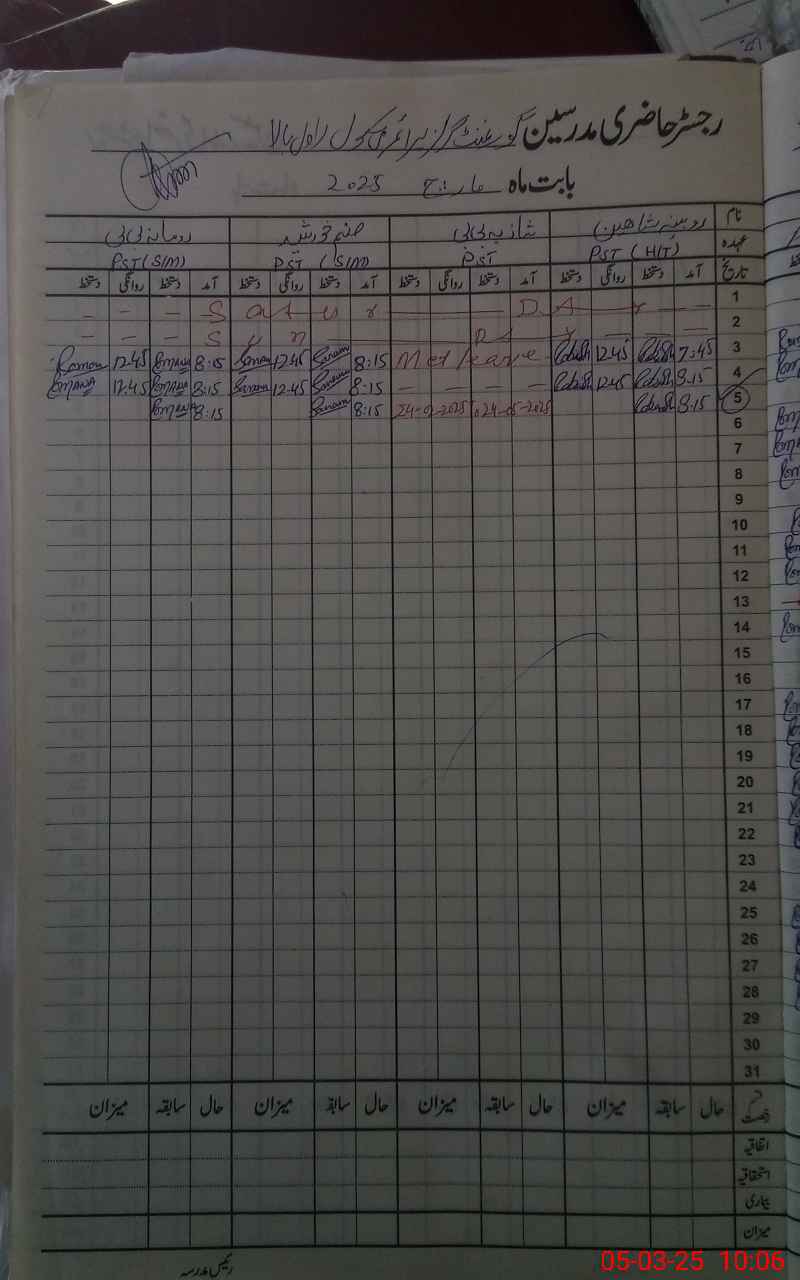 رجسٹر حاضری مدرسین گورنمنٹ گرلز پرائمری سکول راول بالا
بابت ماہ مارچ 2025
نام روبینہ شاہین شازیہ بی بی صنم خورشید رومانہ بی بی
عہدہ PST (H/T) PST PST (S/M) PST (S/M)
تاریخ آمد دستخط روانگی دستخط آمد دستخط روانگی دستخط آمد دستخط روانگی دستخط آمد دستخط روانگی دستخط
1 - - - S a t u r - D A y - -
2 - - - S u n D A y - -
3 Romana 12:45 Romana 8:15 Sanam 12:45 Sanam 8:15 Met leave 12:45 7:45
4 Romana 12:45 Romana 8:15 Sanam 12:45 Sanam 8:15 - - - - 12:45 8:15
5 Romana 8:15 Sanam 8:15 24-02-2025 to 24-05-2025 8:15
6
7
8
9
10
11
12
13
14
15
16
17
18
19
20
21
22
23
24
25
26
27
28
29
30
31
قسم رخصت حال سابقہ میزان حال سابقہ میزان حال سابقہ میزان حال سابقہ میزان
اتفاقیہ
استحقاقیہ
بیماری
میزان
رئیس مدرسہ
05-03-25 10:06